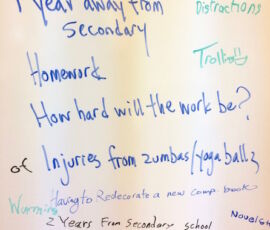 1 year away from
Distractions
Secondary
Homework
How hard will the work be?
of
Injuries from zumbas/yoga balls
Having to Redecorate a new comp. book
2 Years From Secondary school